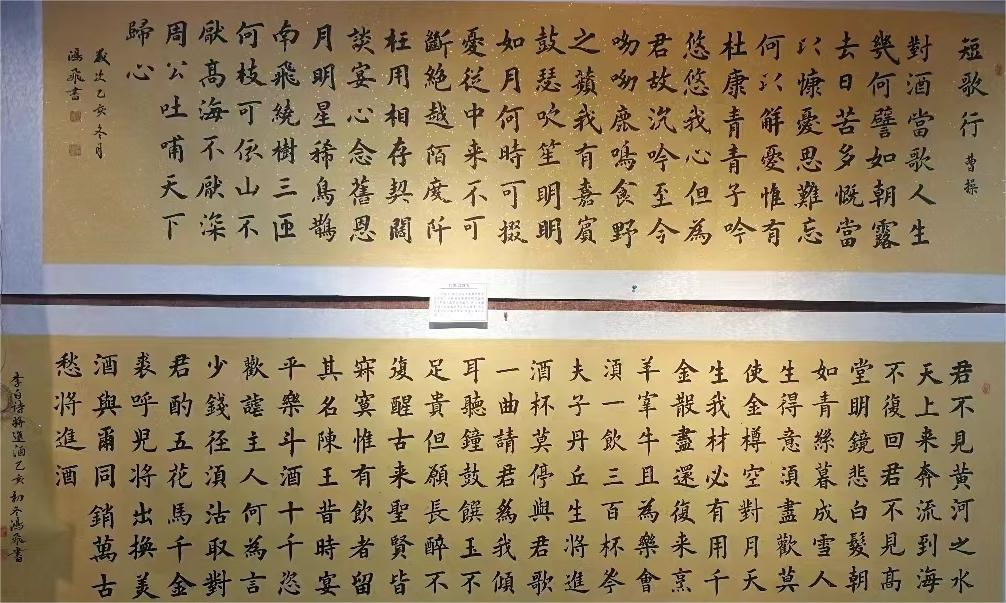 短歌行 曹操
對酒當歌人生
幾何譬如朝露
去日苦多慨當
以慷憂思難忘
何以解憂惟有
杜康青青子吟
悠悠我心但為
君故沉吟至今
呦呦鹿鳴食野
之蘋我有嘉賓
鼓瑟吹笙明明
如月何時可掇
憂從中来不可
斷絕越陌度阡
枉用相存契闊
談宴心念舊恩
月明星稀烏鵲
南飛繞樹三匝
何枝可依山不
厭高海不厭深
周公吐哺天下
歸心
歲次乙亥冬月
鴻飛書
君不見黃河之水
天上来奔流到海
不復回君不見高
堂明鏡悲白髮朝
如青絲暮成雪人
生得意須盡歡莫
使金樽空對月天
生我材必有用千
金散盡還復来烹
羊宰牛且為樂會
須一飲三百杯岑
夫子丹丘生將進
酒杯莫停與君歌
一曲請君為我傾
耳聽鐘鼓饌玉不
足貴但願長醉不
復醒古来聖賢皆
寂寞惟有飲者留
其名陳王昔時宴
平樂斗酒十千恣
歡謔主人何為言
少錢徑須沽取對
君酌五花馬千金
裘呼兒將出換美
酒與爾同銷萬古
愁將進酒
李白詩將進酒乙亥初冬鴻飛書